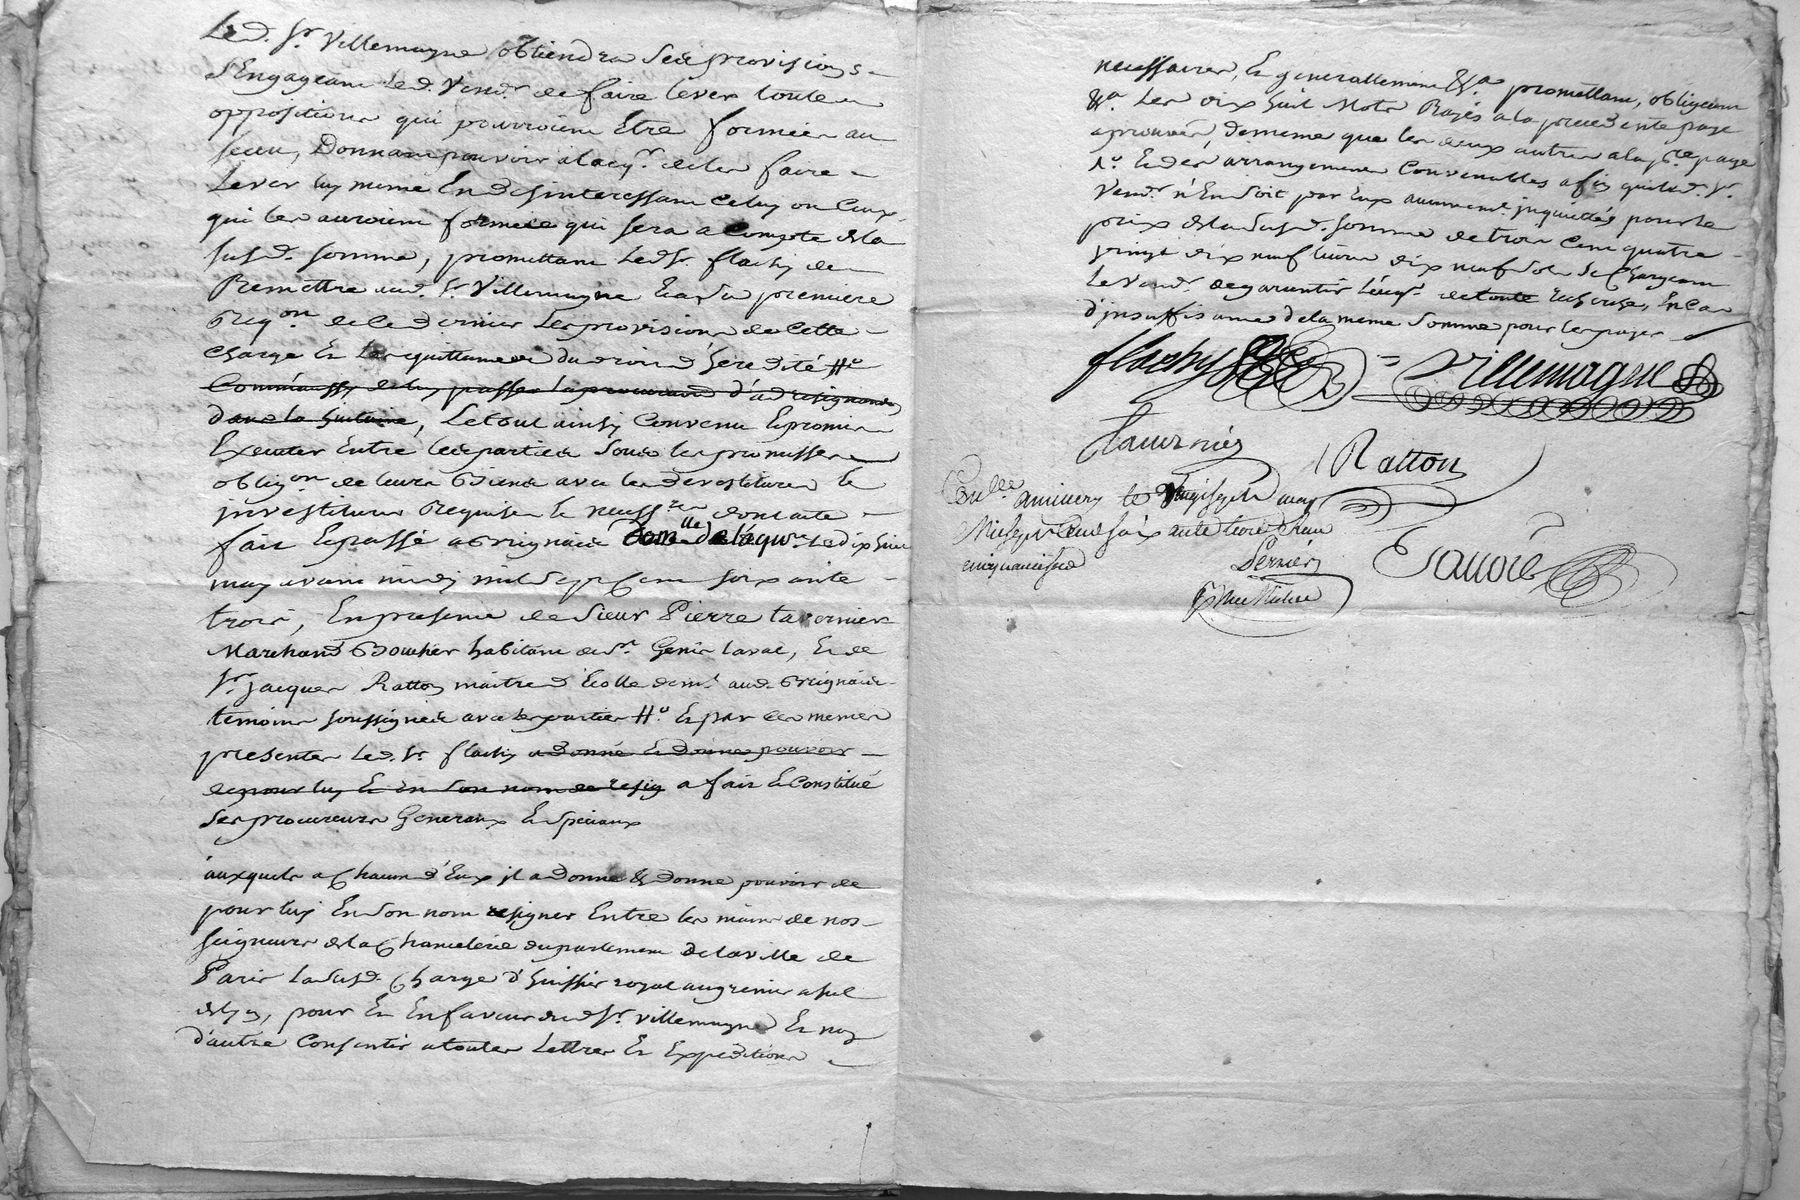 Led. Sr. Villemagne obtiendra Sesd. provisions
S'Engageant Led. Vendr. de faire lever toutes
oppositions qui pourroient Etre formées au
sceau, Donnant pouvoir alacqr. de les faire
Lever luy meme En desinteressant Celuy ou Ceux
qui les auroient formées qui sera a Compte de la
susd. somme, promettant Led. Sr. flachy de
Remettre aud. Sr. Villemagne Et a sa premiere
Reqon. de Ce dernier Les provisions de Cette
Charge Et les quittances du droit d'heredité #o
Comm'aussy de luy passer la procuration d'ad resignandum
dans la huitaine, Le tout ainsy Convenu Et promis
Executer Entre lesd. parties Sous les promissions
obligon. de leurs Biens avec les devestitures Et
investitures Requises Et necessres. dont acte
fait Et passé a Brignais domlle de l'aqur. Le dix huit
may avant midy mil Sept Cent soixante
trois, En presence de Sieur Pierre tavernier
Marchand Boucher habitant de St. Genis Laval, Et de
Sr. Jacques Ratton maitre d'Ecolle demt. aud. Brignais
temoins soussignés avec les parties #o Et par Ces memes
presentes Led. Sr. flachy a donné Et donne pouvoir
de pour luy Et En Son nom de resig a fait Et Constitué
Ses procureurs Generaux Et Speciaux
auxquels a Chacun d'Eux il a donné & donne pouvoir de
pour luy En Son nom resigner Entre les mains de nos
seigneurs de la Chancelerie du parlement de la ville de
Paris La susd. Charge d'huissier royal au grenier a sel
de Lyon, pour Et En faveur dud. Sr. Villemagne Et non
d'autre Consentir a toutes Lettres Et Expeditions
necessaires, Et generallement &a. promettant, obligeant
&a. Les dix huit Mots Rayés a la precedente page
aprouvés, de meme que les deux autres a la pre. page
#o Et des arrangements Convenables afin que led. Sr.
Vendr. n'En soit par Eux aucunemt. inquiettés pour le
prix de la susd. somme de trois Cent quatre
vingt dix neuf livres dix neuf sols Se Chargeant
Le Vendr. de garantir L'acqr. de toute recherche, En Cas
d'insuffisance de la meme Somme pour les payer
flachy = Villemagne
Tavernier
Ratton
Conllé anivery le vingt sept may
Mil sept Cent soixante trois Reçu
Cinquante sols
Perrier
Savoie